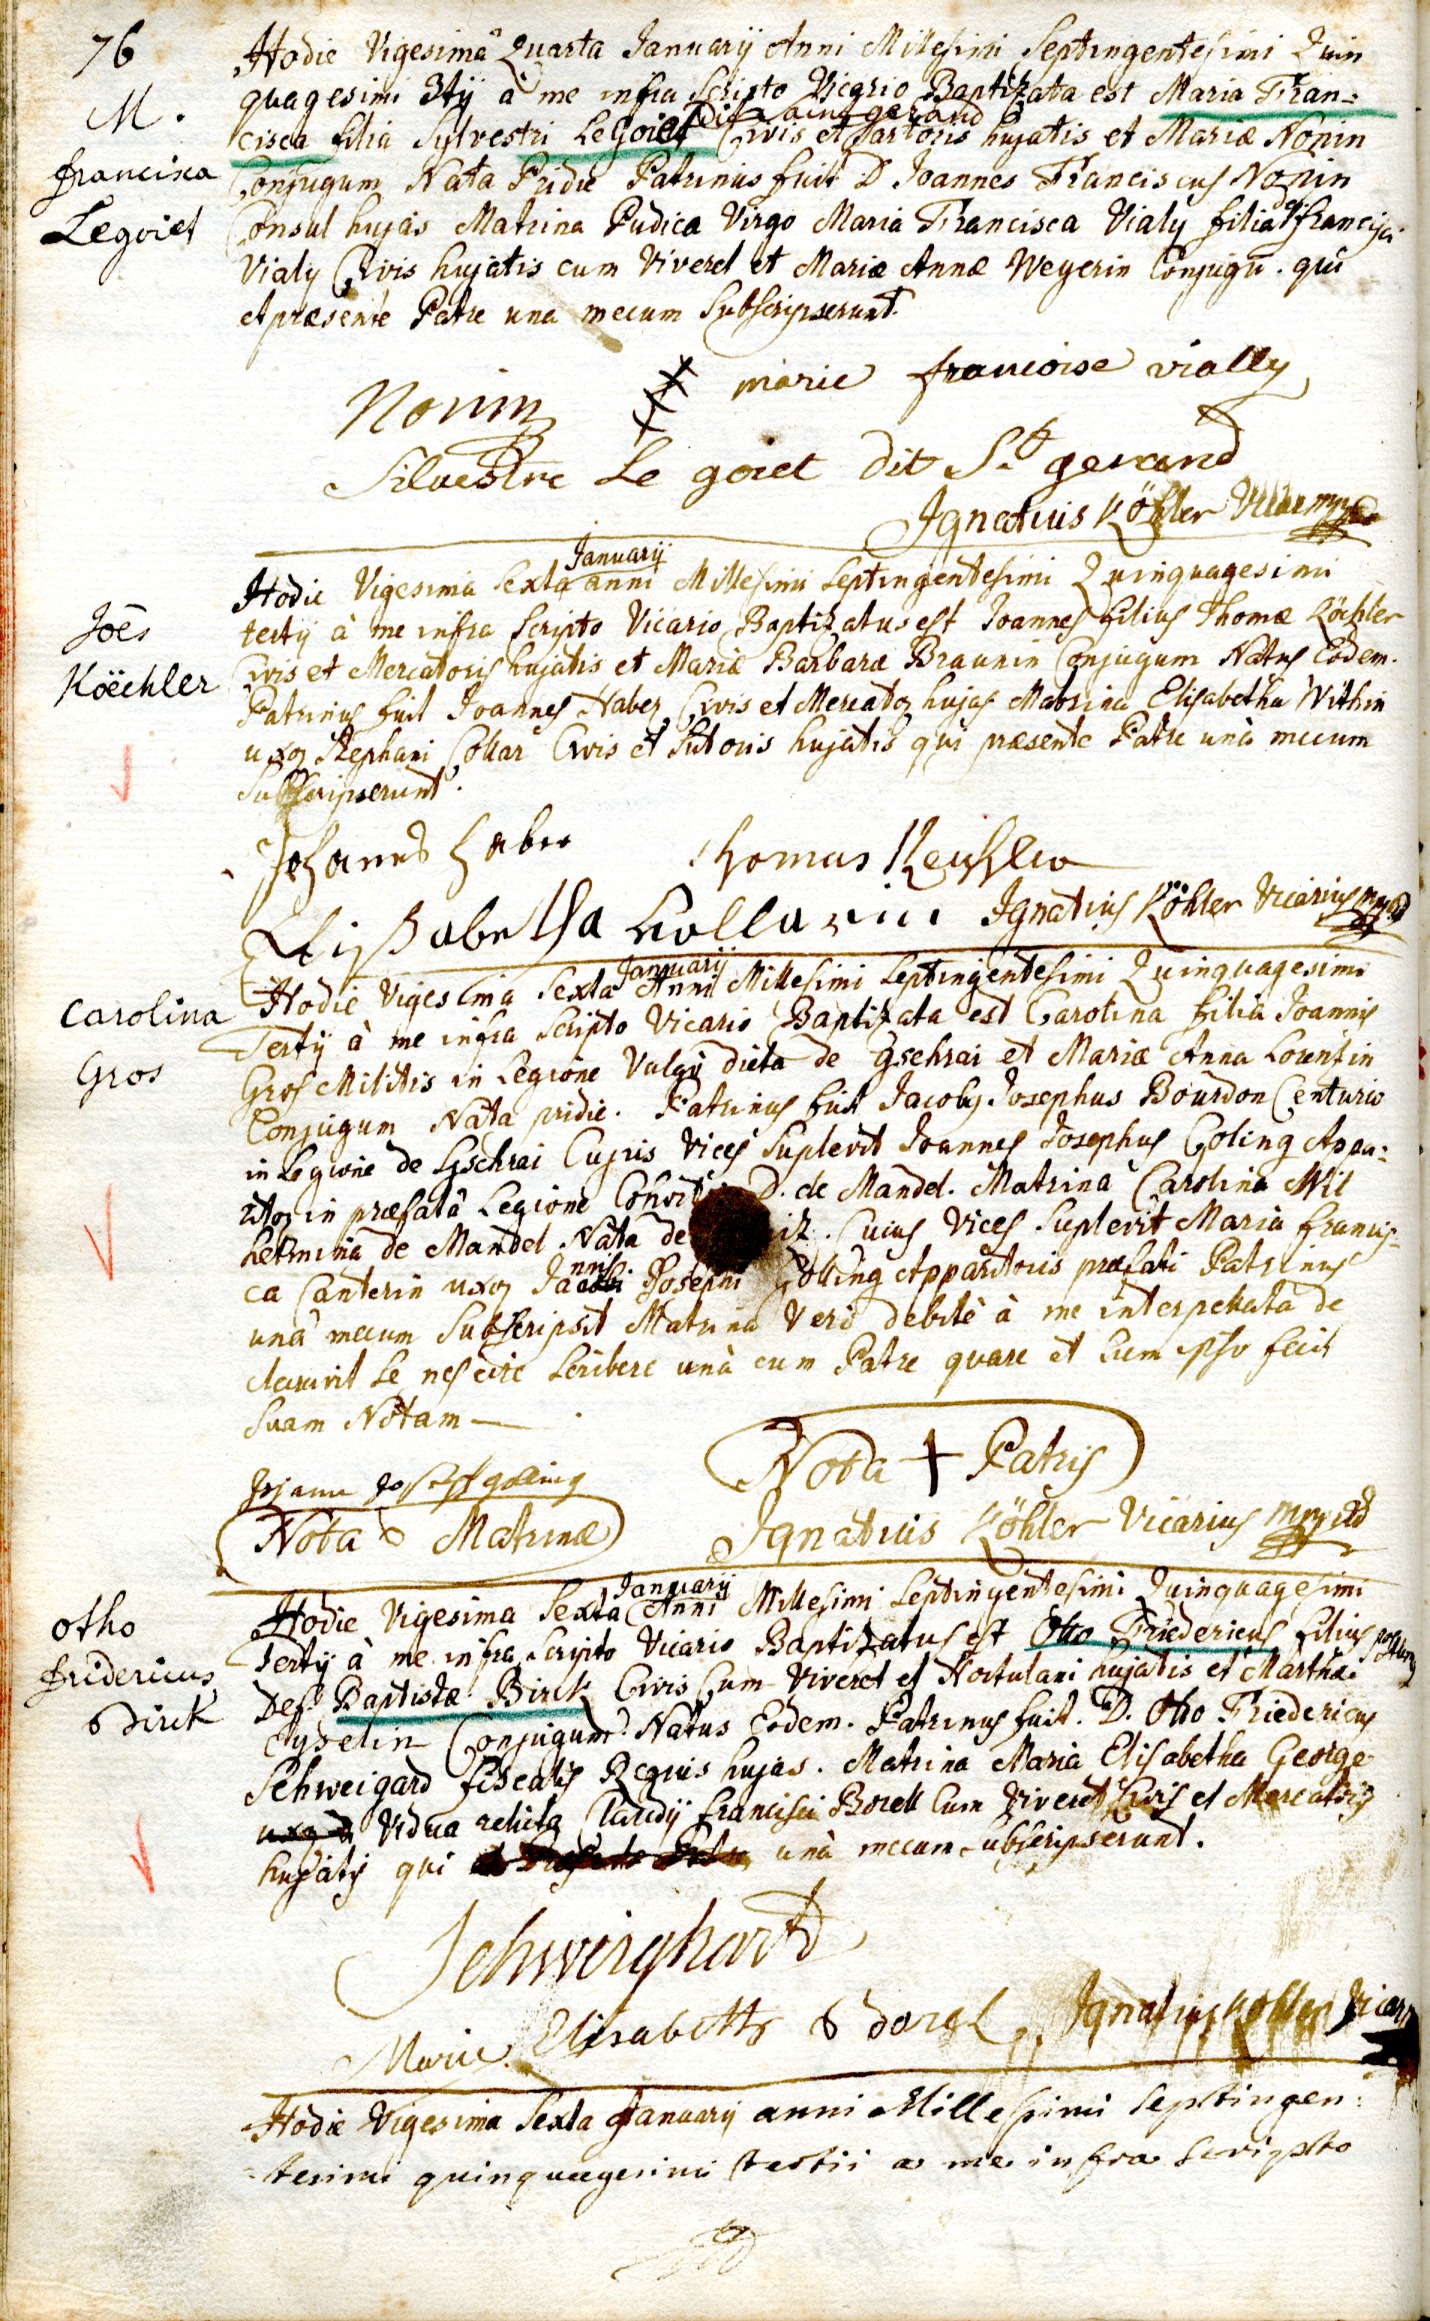 76
M.
francisca
Legoiet
Hodie Vigesimâ Quarta Januarÿ Anni Millesimi Septingentesimi Quin
quagesimi 3tÿ à me infra Scripto Vicario Baptizata est Maria Fran=
dit saint gerand
cisca filia Sylvestri LeGoiet Civis et Sartoris hujatis et Mariæ Nonin
Conjugum Nata Pridie Patrinus fuit D Joannes Franciscus Nonin
Consul hujas Matrina Pudica Virgo Maria Francisca Vialy filia D. francisci
Vialy Civis hujatis cum Viveret et Mariæ Annæ Weyerin Conjugū. qui
et præsente Patre una mecum Subscripserunt.
Nonin marie francoise vially
Silvestre Le goiet dit St gerand
Ignatius Köhler Vicar mpp
Joēs
Köechler
Januarÿ
Hodie Vigesima Sexta anni Millesimi Septingentesimi Quinquagesimi
tertÿ à me infra Scripto Vicario Baptizatus est Joannes filius Thomæ Köchler
Civis et Mercatoris hujatis et Mariæ Barbaræ Braunin Conjugum Natus Eodem.
Patrinus fuit Joannes Haber Civis et Mercator hujas Matrina Elisabetha Within
uxor Stephani Collar Civis et Sutoris hujatis qui præsente Patre unà mecum
Subscripserunt.
Johannes Haber Thomas Keuchler
Elißabetha Collarin Ignatius Köhler Vicarius mpp
Carolina
Gros
Januarÿ
Hodie Vigesima Sexta Anni Millesimi Septingentesimi Quinquagesimi
Tertÿ à me infra Scripto Vicario Baptizata est Carolina filia Joannis
Gros Militis in Legione Vulgò dicta de Gschrai et Mariæ Anna Lorentin
Conjugum Nata pridie. Patrinus fuit Jacobus Josephus Bourdon Centurio
in Legione de Gschrai Cujus Vices Suplevit Joannes Josephus Goling Appa=
ritor in præfatâ Legione D. de Mandel. Matrina Carolina Wil
helmina de Mandel Nata de Cuius Vices Suplevit Maria francis=
nnis
ca Canterin uxor Jacobi Josephi Golling Apparitoris præfati Patrinus
unà mecum Subscripsit Matrina Verò debitè à me interpellata de
claravit Se nescire Scribere unà cum Patre quare et Cum ipso fecit
Suam Notam
Johann Joseph golling Nota + Patris
Nota o Matrinæ Ignatius Köhler Vicarius mpp
Otho
fridericus
Birck
Januarÿ
Hodie Vigesima Sexta Anni Millesimi Septingentesimi Quinquagesimi
Tertÿ à me infra Scripto Vicario Baptizatus est Otto Friedericus filius
Def. Baptistæ Birck Civis Cum Viveret et Hortulani hujatis et Marthæ
Eyselin Conjugum. Natus Eodem. Patrinus fuit. D. Otto Friedericus
Schweigard fiscalis Regius hujas. Matrina Maria Elisabetha George
Vidua relicta Claudÿ francisci Borell Cum Viveret Civis et Mercatoris
hujatis qui unà mecum Subscripserunt.
Schweighardt
Marie Elisabeth Borel Ignatius Köhler Vicari
Hodie Vigesima Sexta Januarÿ anni Millesimi Septingen:
:tesimi quinquagesimi tertii a me infra Scripto